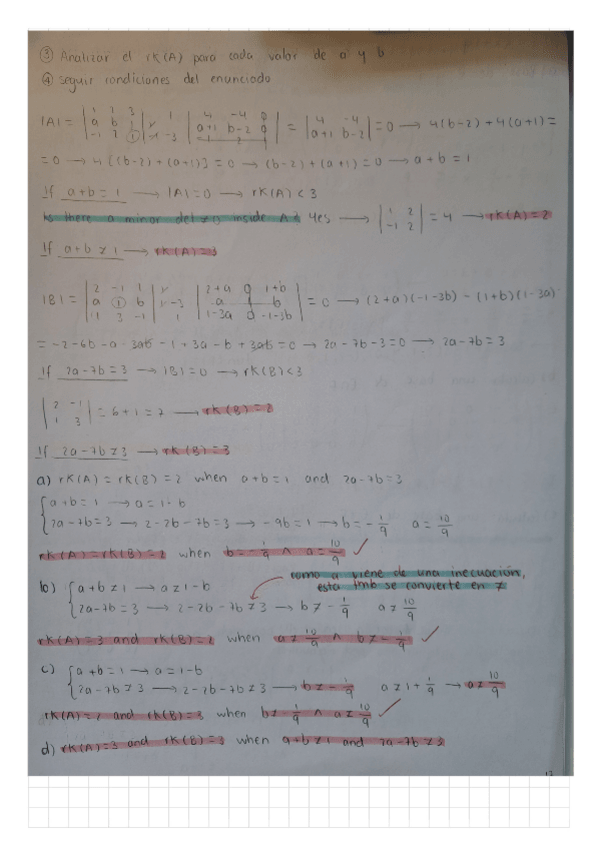 ③ Analizar el rK(A) para cada valor de a y b
④ seguir condiciones del enunciado
|A| = | 1 2 3 | | 4 -4 0 | = | 4 -4 | = 0 → 4(b-2) + 4(a+1) =
| a b 1 | | a+1 b-2 0 | | a+1 b-2 |
| -1 2 ① | | -1 2 1 |
= 0 → 4[(b-2) + (a+1)] = 0 → (b-2) + (a+1) = 0 → a + b = 1
If a+b = 1 → |A| = 0 → rK(A) < 3
Is there a minor det ≠ 0 inside A? Yes → | 1 2 | = 4 → rK(A) = 2
| -1 2 |
If a+b ≠ 1 → rK(A) = 3
|B| = | 2 -1 1 | | 2+a 0 1+b | = 0 → (2+a)(-1-3b) - (1+b)(1-3a)
| a ① b | | a 1 b |
| 1 3 -1 | | 1-3a 0 -1-3b |
= -2 - 6b - a - 3ab - 1 + 3a - b + 3ab = 0 → 2a - 7b - 3 = 0 → 2a - 7b = 3
If 2a-7b = 3 → |B| = 0 → rK(B) < 3
| 2 -1 | = 6 + 1 = 7 → rK(B) = 2
| 1 3 |
If 2a-7b ≠ 3 → rK(B) = 3
a) rK(A) = rK(B) = 2 when a+b = 1 and 2a-7b = 3
{ a+b = 1 → a = 1-b
2a-7b = 3 → 2-2b-7b = 3 → -9b = 1 → b = -1/9 a = 10/9
rK(A) = rK(B) = 2 when b = -1/9 ∧ a = 10/9 ✓
como a viene de una inecuación,
esta tmb se convierte en ≠
b) { a+b ≠ 1 → a ≠ 1-b
2a-7b = 3 → 2-2b-7b ≠ 3 → b ≠ -1/9 a ≠ 10/9
rK(A) = 3 and rK(B) = 2 when a ≠ 10/9 ∧ b ≠ -1/9 ✓
c) { a+b = 1 → a = 1-b
2a-7b ≠ 3 → 2-2b-7b ≠ 3 → b ≠ -1/9 a ≠ 1 + 1/9 → a ≠ 10/9
rK(A) = 2 and rK(B) = 3 when b ≠ -1/9 ∧ a ≠ 10/9 ✓
d) rK(A) = 3 and rK(B) = 3 when a+b ≠ 1 and 2a-7b ≠ 3